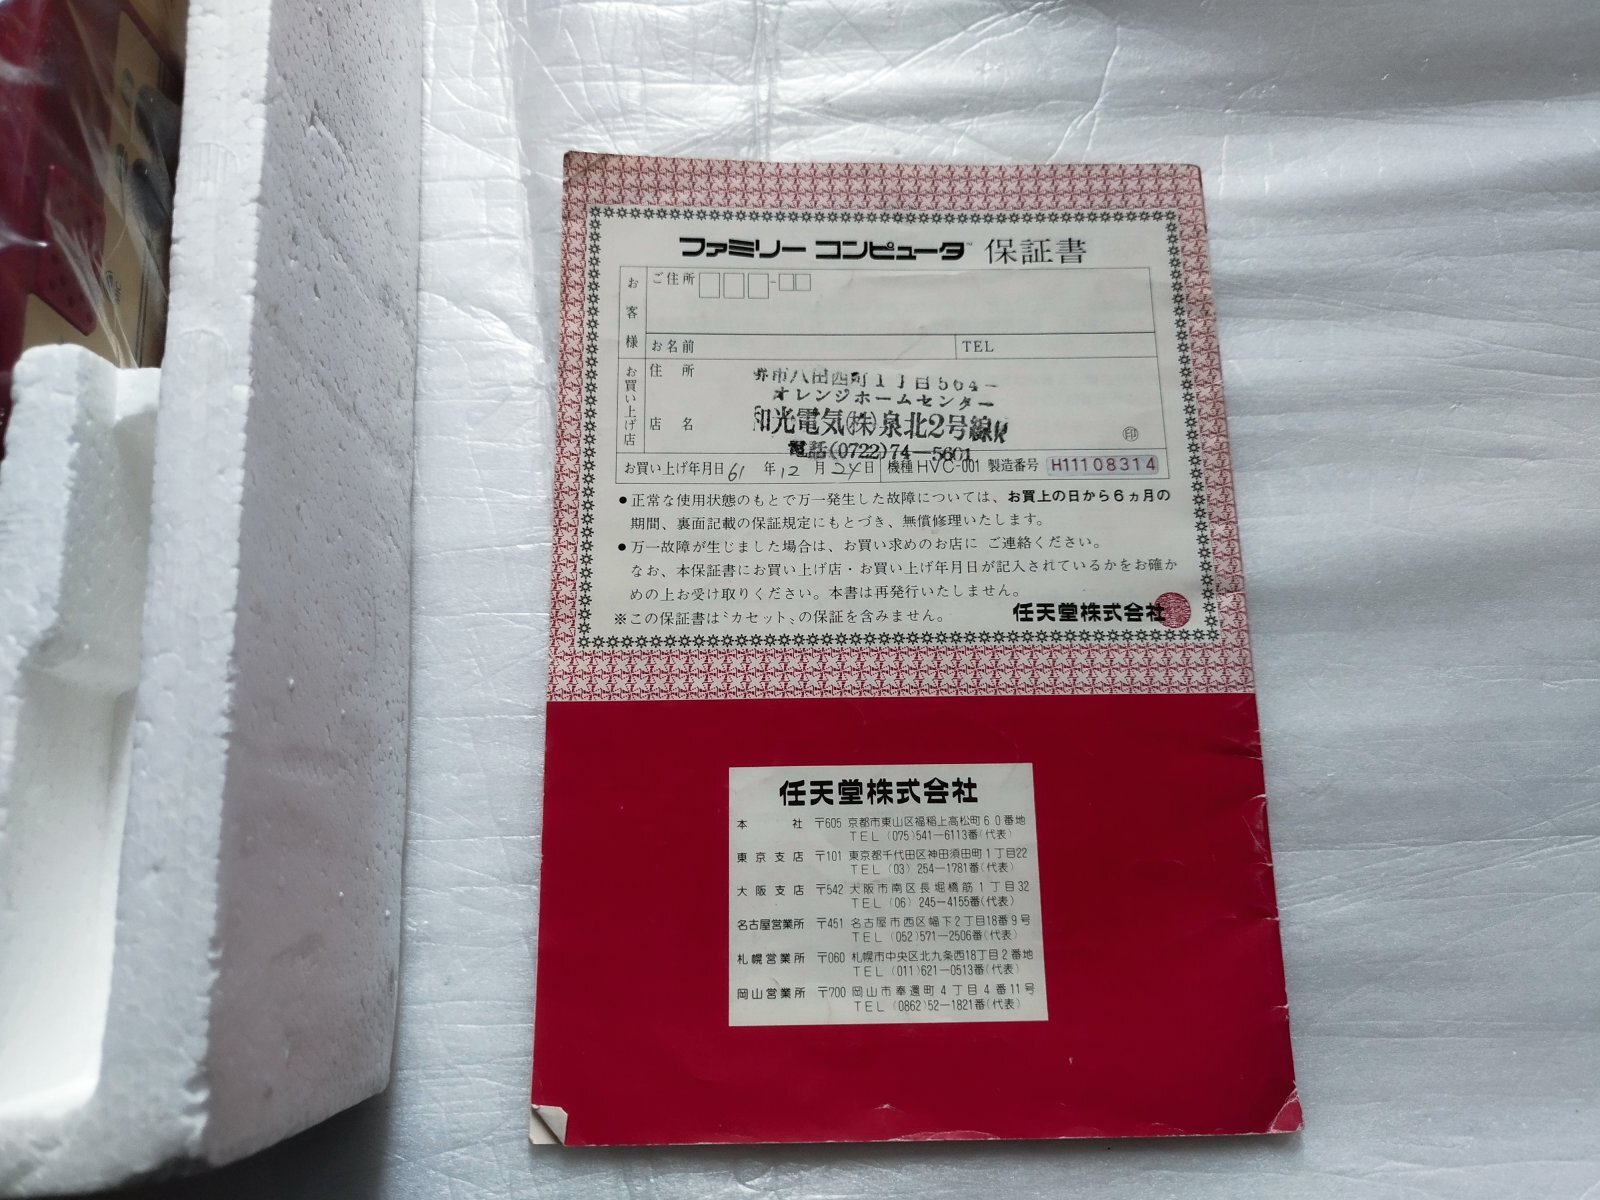 ファミリー コンピュータ™ 保証書
お客様
ご住所
お名前
TEL
お買い上げ店
住所
市八田西町1丁目564-
オレンジホームセンター
店名
和光電気(株)泉北2号線
㊞
電話(0722)74-5601
お買い上げ年月日 61 年 12 月 24 日 機種 HVC-001 製造番号 H11108314
●正常な使用状態のもとで万一発生した故障については、お買上の日から6ヵ月の
期間、裏面記載の保証規定にもとづき、無償修理いたします。
●万一故障が生じました場合は、お買い求めのお店に ご連絡ください。
なお、本保証書にお買い上げ店・お買い上げ年月日が記入されているかをお確か
めの上お受け取りください。本書は再発行いたしません。
※この保証書は〝カセット〟の保証を含みません。
任天堂株式会社
任天堂株式会社
本社 〒605 京都市東山区福稲上高松町60番地
TEL (075)541-6113番(代表)
東京支店 〒101 東京都千代田区神田須田町1丁目22
TEL (03) 254-1781番(代表)
大阪支店 〒542 大阪市南区長堀橋筋1丁目32
TEL (06) 245-4155番(代表)
名古屋営業所 〒451 名古屋市西区幅下2丁目18番9号
TEL (052)571-2506番(代表)
札幌営業所 〒060 札幌市中央区北九条西18丁目2番地
TEL (011)621-0513番(代表)
岡山営業所 〒700 岡山市奉還町4丁目4番11号
TEL (0862)52-1821番(代表)